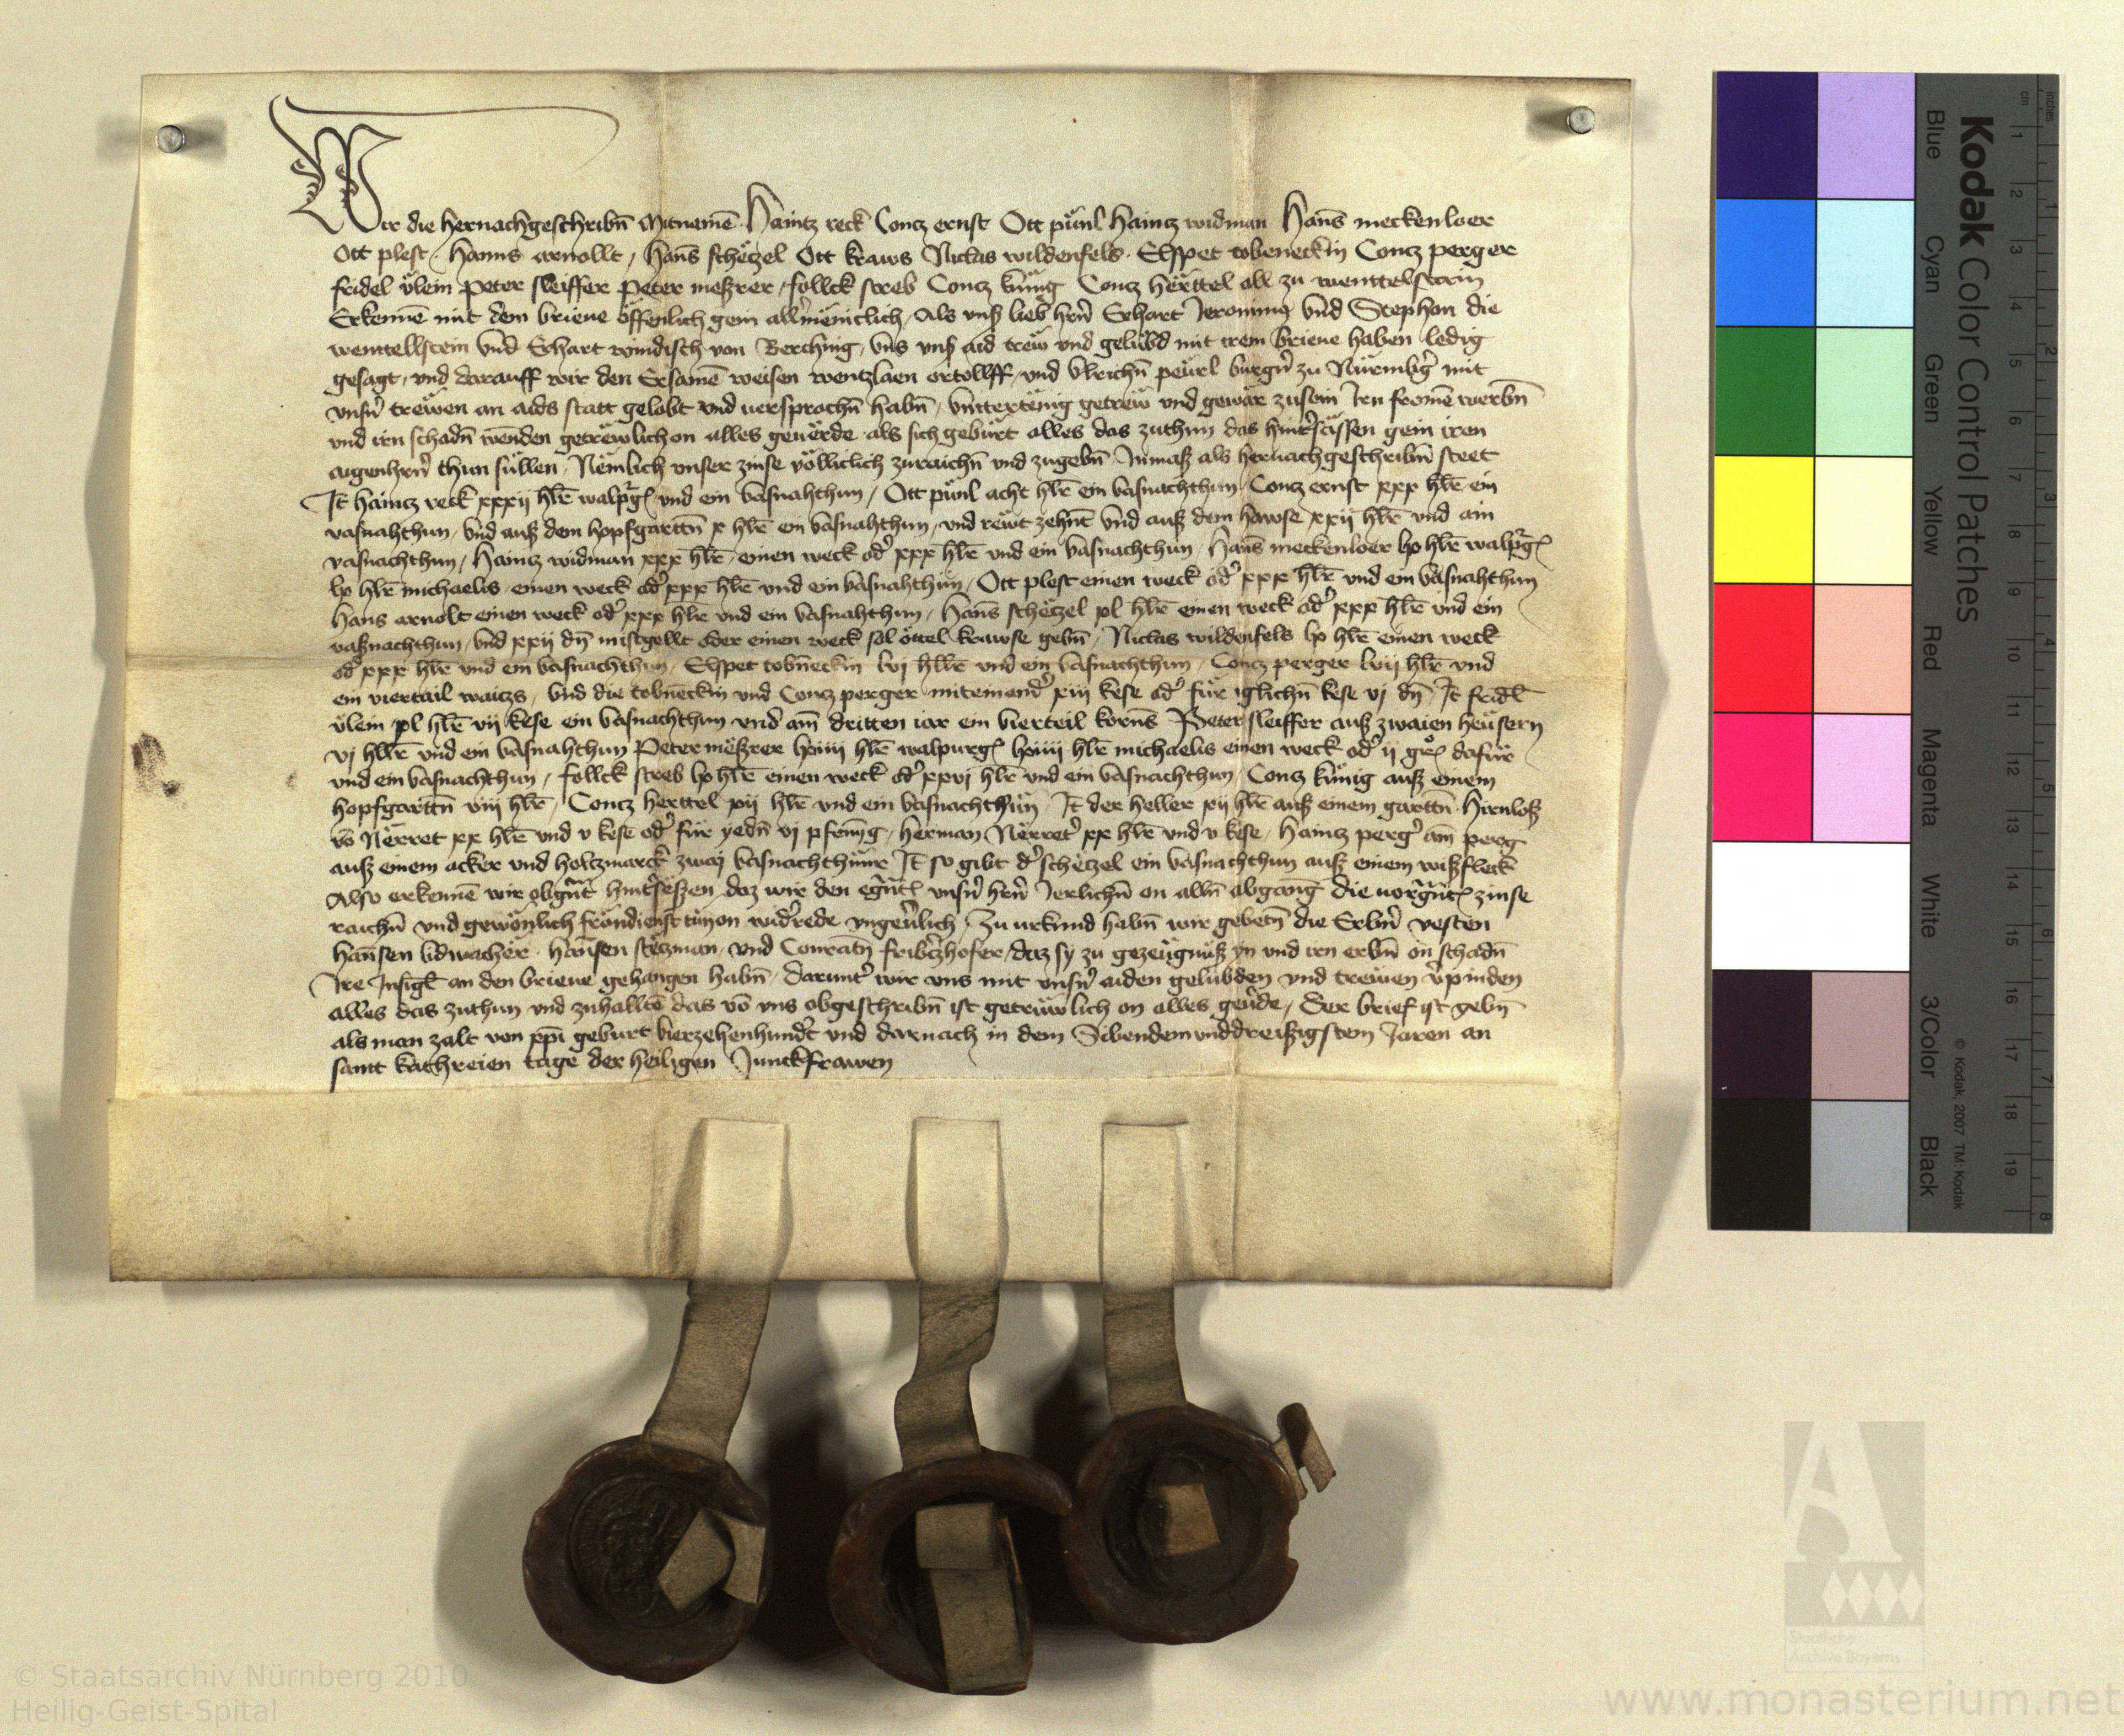 Wir die hernachgeschribn̄ Mitnamē Haintz reck Concz ernst Ott pünl Haincz widman Hanns meckenloer
Ott plest Hanns arnollt Hanns schëtzel Ott kraws Niclas wildenfels Elspet tobeneckin Concz perger
fridel ülein Peter sleiffer Peter meßrer follck streb Concz künig Concz hërttel all zu wenttelstein
Erkennē mit dem brieue offenlich gein allermëniclich Als vnß lieb herrn Erhart Jeronimus vnd Stephan die
wenttellstein vnd Erhart windisch von Berching vns vnß aid trew vnd gelübd mit irem brieue haben ledig
gesagt vnd darauff wir den Ersamē weisen wentzlaen ertollff vnd Vlrichn̄ peürl burgern zu Nürmberg mit
vnsern trewen an aids statt gelobt vnd uersprochn̄ habn̄ vnttertenig getrew vnd gewar zusein Iren fromē werbn̄
vnd irn schadn̄ wenden getrewlich on alles geuërde als sich gebürt alles das zuthun das hintersässen gein iren
aigenherrn thun süllen Nemlich vnser zinse völliclich zuraichn̄ vnd zugebn̄ Inmaß als hernachgeschribn̄ steet
It haincz reck xxxij hlr̄ walpurg vnd ein vasnahthun Ott pünl acht hlr̄ ein vasnachthun Concz ernst xxx hlr̄ ein
vasnahthun vnd auß dem hopfgarttn̄ x hlr̄ ein vasnahthun vnd rewtzehnt vnd auß dem hawse xxij hlr̄ vnd ain
vasnachthun Haincz widman xxx hlr̄ einen weck oder xxx hlr̄ vnd ein vasnachthun Hanns meckenloer lx hlr̄ walpurg
lx hlr̄ michaelis einen weck oder xxx hlr̄ vnd ein vasnahthun Ott plest einen weck oder xxx hlr̄ vnd ein vasnahthun
Hans arnolt einen weck oder xxx hlr̄ vnd ein vasnahthun Hanns schëtzel xl hlr̄ einen weck oder xxx hlr̄ vnd ein
vaßnachthun vnd xxij dn̄ mistgellt aber einen weck sol öttel krawse gebn̄ Niclas wildenfels lx hlr̄ einen weck
oder xxx hlr̄ vnd ein vasnachthun Elspet tobneckin lvj hllr̄ vnd ein vasnachthun Concz perger lvij hlr̄ vnd
ein viertail waiczs vnd die tobneckin vnd Concz perger miteinander xiij kese oder für iglichn̄ kese vj dn̄ It fridl
ülein xl hlr̄ vij kese ein vasnachthun vnd am dritten iar ein vierteil korns Peter sleiffer auß zwaien heüsern
vj hllr̄ vnd ein vasnahthun Peter meßrer lxiiij hlr̄ walpurg lxiiij hlr̄ michaelis einen weck oder ij gr dafür
vnd ein vasnachthun follck streb lx hlr̄ einen weck oder xxvj hlr̄ vnd ein vasnachthun Concz künig auß einem
hopfgarttn̄ viij hlr̄ Concz herttel xij hlr̄ vnd ein vasnachthun It der heller xij hlr̄ auß einem garttn̄ Hirnloß
vō Nërret xx hlr̄ vnd v kese oder für yedn̄ vj pfennig Herman Nërreter xx hlr̄ vnd v kese Haincz perger am perg
auß einem acker vnd holtzmarck zway vasnachthünr It so gibt der schëtzel ein vasnachthun auß einem wißfleck
Also erkennē wir obgnt hinterseßen daz wir den egnt vnsern herrn Jerlichn̄ on alln̄ abgang die uorgnt zinse
raichn̄ vnd gewönlich frondienst tun on widerrede vngeuerlich Zu urkund habn̄ wir gebetn̄ die Erbern vesten
hannsen lidwacher hannsen stëtzman vnd Conratn̄ fribtzhofer daz sy zu gezeügnüß yn vnd irn erbn̄ on schadn̄
Ire Insigl an den brieue gehangen habn̄ darunter wir vns mit vnsern aiden gelübden vnd trewen verpinden
alles das zuthun vnd zuhalltē das vō vns obgeschribn̄ ist getrewlich on alles geuerde Der brief ist gebn̄
als man zalt von xpi geburt vierzehenhundert vnd darnach in dem Sibendenvnddreißigstem Jaren an
sannt kathreien tage der heiligen Junckfrawen
Kodak Color Control Patches
Blue Cyan Green Yellow Red Magenta White 3/Color Black
© Kodak, 2007 TM: Kodak
inches 1 2 3 4 5 6 7 8
cm 1 2 3 4 5 6 7 8 9 10 11 12 13 14 15 16 17 18 19
Staatliche
Archive Bayerns
© Staatsarchiv Nürnberg 2010
Heilig-Geist-Spital
www.monasterium.net